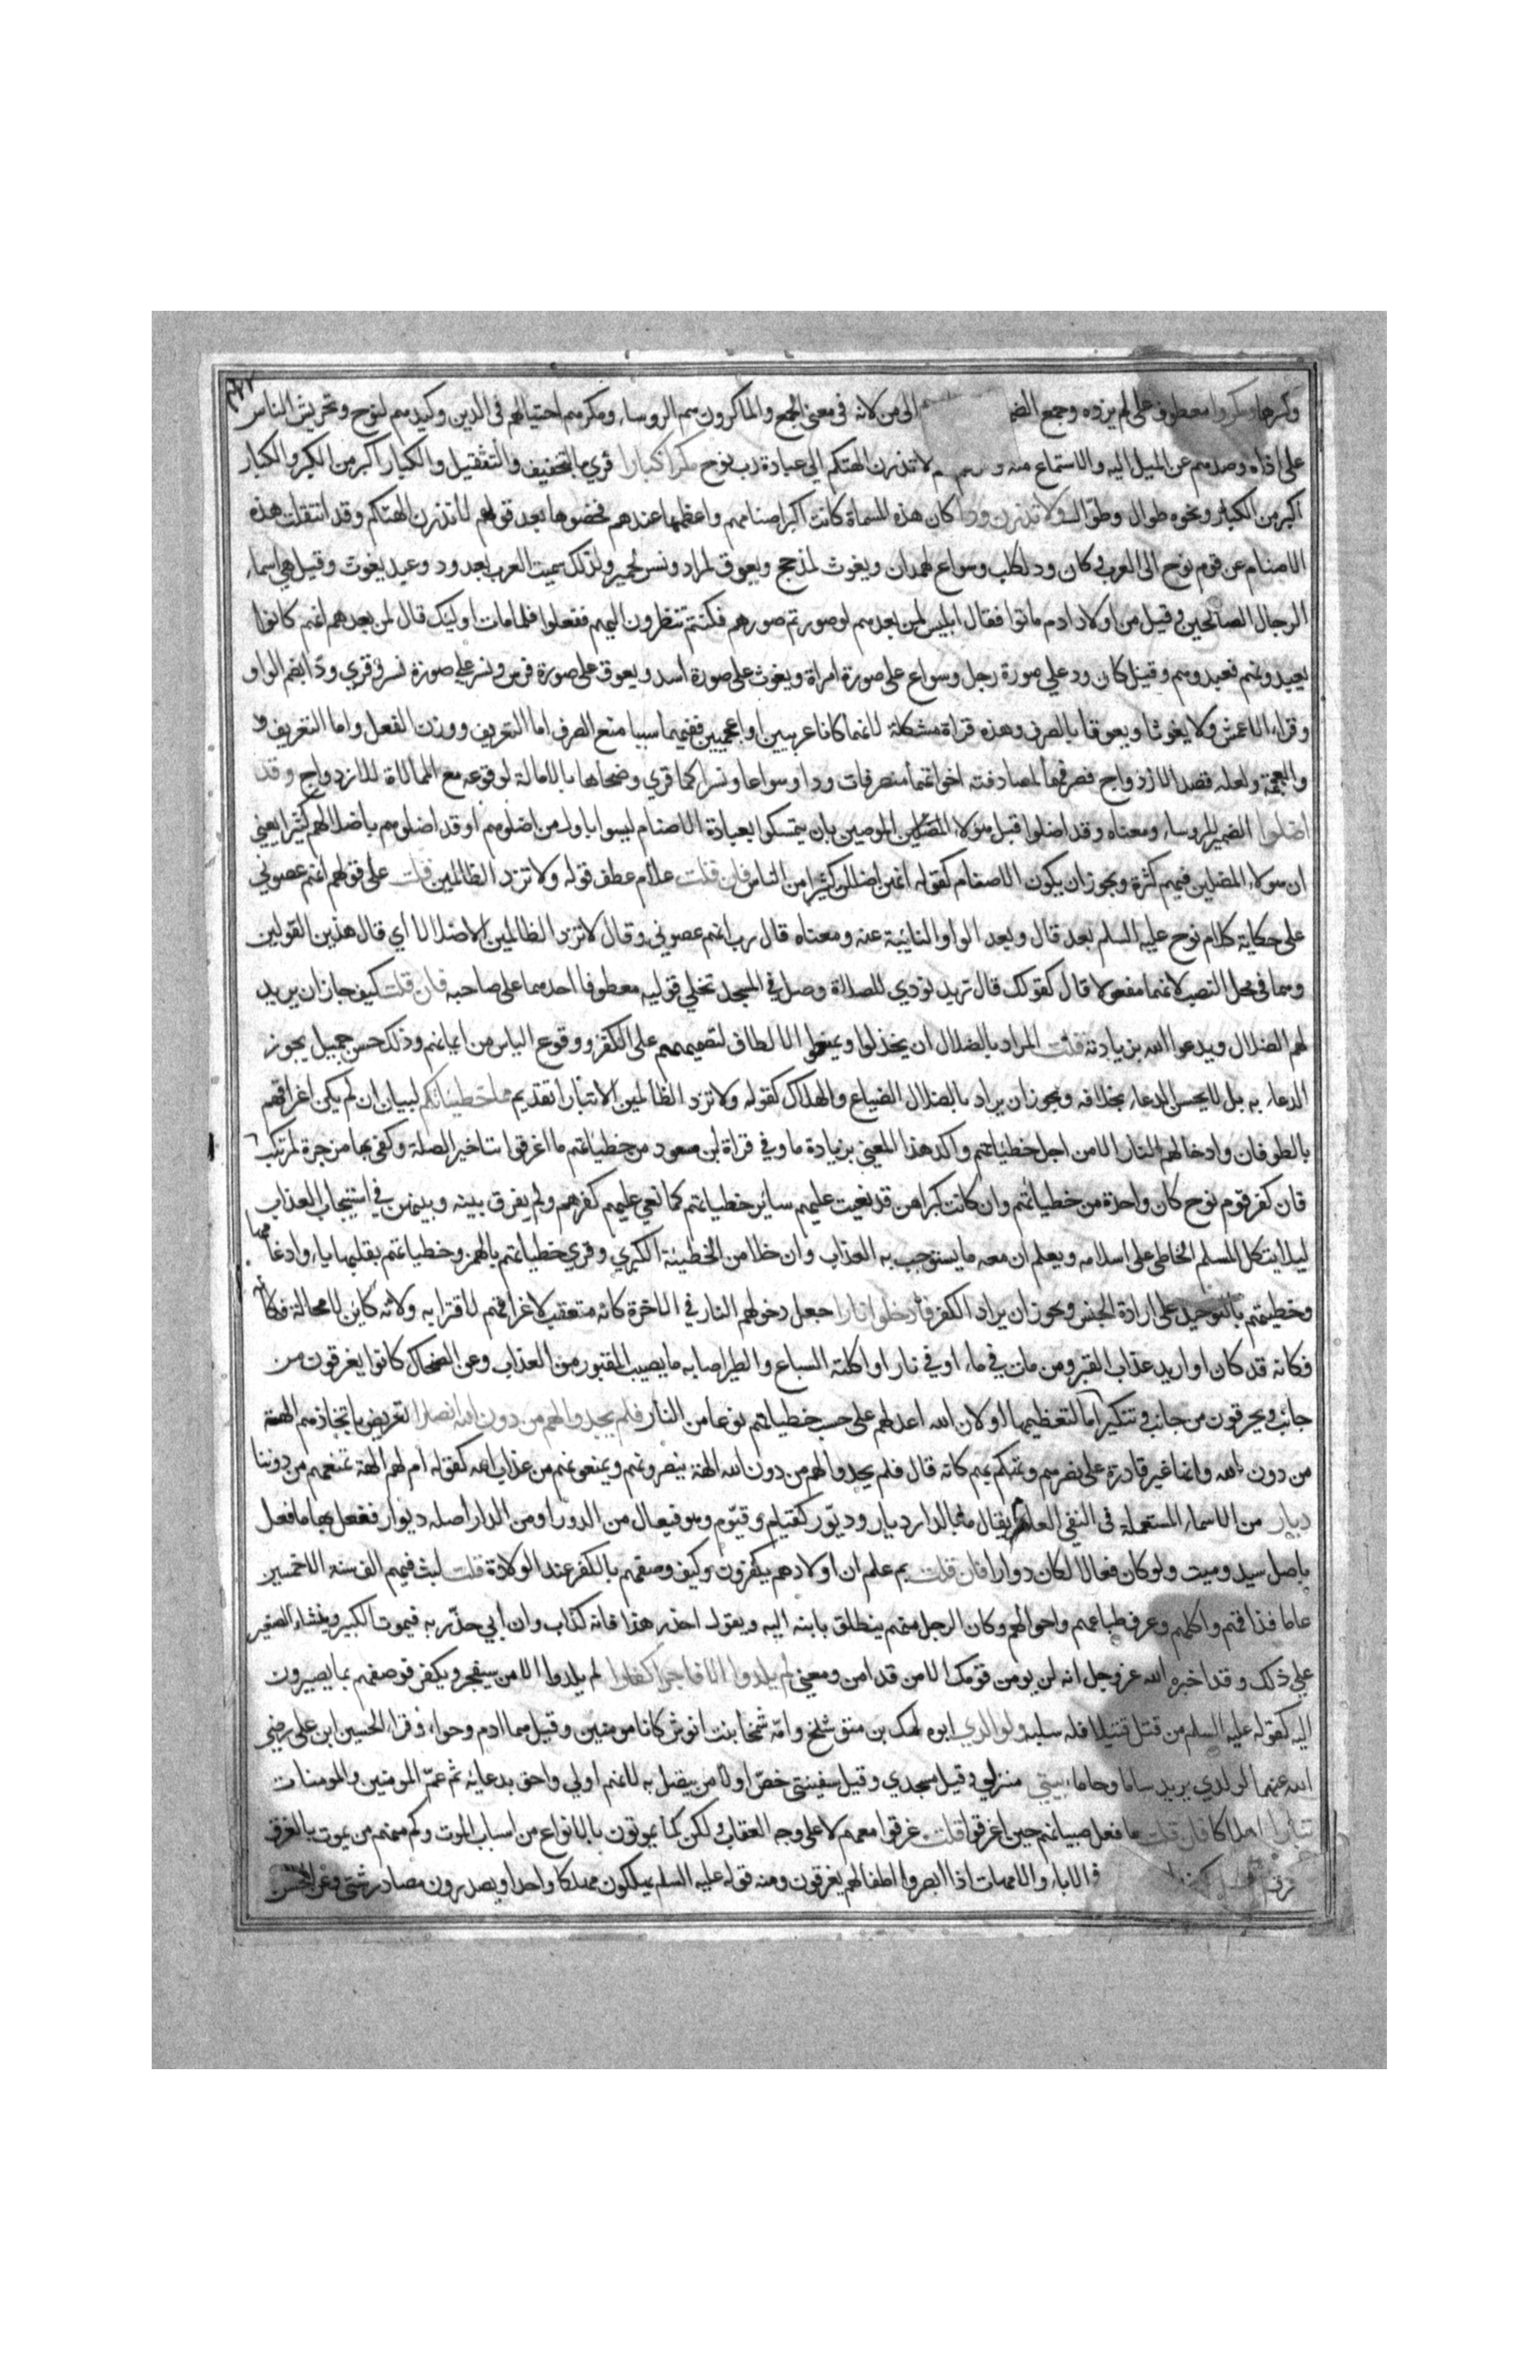 وكسرها ومكروا معطوف على لم يزده وجمع الضم الى من لانه في معنى الجمع والماكرون هم الروساء ومكرهم احتيالهم في الدين وكيدهم لنوح وتحريش الناس
على اذاه وصدهم عن الميل اليه والاستماع منه لا تذرن الهتكم الى عبادة رب نوح مكرا كبارا قري بالتخفيف والتثقيل والكبار اكبر من الكبير والكبار
اكبر من الكبار ونحوه طوال وطوّال ولا تذرن ودا كان هذه المسماة كانت اكبر اصنامهم واعظمها عندهم فخصوها بعد قولهم لا تذرن الهتكم وقد انتقلت هذه
الاصنام عن قوم نوح الى العرب فكان ود لكلب وسواع لهمدان ويغوث لمذحج ويعوق لمراد ونسر لحمير ولذلك سميت العرب بعبد ود وعبد يغوث وقيل هي اسماء
الرجال الصالحين وقيل من اولاد ادم ماتوا فقال ابليس لمن بعدهم لو صورتم صورهم فكنتم تنظرون اليهم ففعلوا فلما مات اوليك قال لمن بعدهم انهم كانوا
يعبدونهم فعبدوهم وقيل كان ود على صورة رجل وسواع على صورة امراة ويغوث على صورة اسد ويعوق على صورة فرس ونسر على صورة نسر وقري ودّا بضم الواو
وقراء الاعمش ولا يغوثا ويعوقا بالصرف وهذه قراة مشكلة لانهما كانا عربيين او اعجميين ففيهما سببا منع الصرف اما التعريف ووزن الفعل واما التعريف
والعجمة ولعله قصد الازدواج فصرفهما لمصادفته اخواتهما منصرفات ودا وسواعا ونسرا كما قري وضحاها بالامالة لوقوعه مع الممالاة للازدواج وقد
اضلوا الضمير للروساء ومعناه وقد اضلوا قبل هولاء المضلين الموصين بان يتمسكوا بعبادة الاصنام ليسوا باول من اضلوهم او قد اضلوهم باضلالهم كثيرا يعني
ان هولاء المضلين فيهم كثرة ويجوز ان يكون الاصنام كقوله انهن اضللن كثيرا من الناس فان قلت علام عطف قوله ولا تزد الظالمين قلت على قولهم انهم عصوني
على حكاية كلام نوح عليه السلم بعد قال وبعد الواو النائبة عنه ومعناه قال رب انهم عصوني وقال لا تزد الظالمين الا ضلالا اي قال هذين القولين
وهما في محل النصب لانهما مفعولا قال كقولك قال زيد نودي للصلاة وصل في المسجد تحلي قوليه معطوفا احدهما على صاحبه فان قلت كيف جاز ان يريد
لهم الضلال ويدعوا الله بزيادته قلت المراد بالضلال ان يخذلوا ويمنعوا الالطاف لتصميمهم على الكفر ووقوع الياس من ايمانهم وذلك حسن جميل يجوز
الدعاء به بل لا يحسن الدعاء بخلافه ويجوز ان يراد بالضلال الضياع والهلاك كقوله ولا تزد الظالمين الا تبارا تقديم مما خطيئاتهم لبيان ان لم يكن اغراقهم
بالطوفان وادخالهم النار الا من اجل خطيئاتهم واكد هذا المعنى بزيادة ما وفي قراة ابن مسعود من خطيئاتهم ما اغرقوا بتاخير الصلة وكفى بها مزجرة لمرتكب
فان كفر قوم نوح كان واحدة من خطياتهم وان كانت كبراهن قد نعيت عليهم ساير خطياتهم كما نعي عليهم كفرهم ولم يفرق بينه وبينهن في استيجاب العذاب
ليلا يتكل المسلم الخاطى على اسلامه ويعلم ان معه ما يستوجب به العذاب وان خلا من الخطيئة الكبري وقري خطيئاتهم بالهمز وخطياتهم بقلبها ياء وادغامها
وخطيئتهم بالتوحيد على ارادة الجنس ويجوز ان يراد الكفر فادخلوا نارا جعل دخولهم النار في الاخرة كانه متعقب لاغراقهم لاقترابه ولانه كاين لا محالة فكانه
فكانه قد كان او اريد عذاب القبر ومن مات في ماء او في نار او اكلته السباع والطير اصابه ما يصيب المقبور من العذاب وعن الضحاك كانوا يغرقون من
جانب ويحرقون من جانب وتنكير اما لتعظيمها او لان الله اعد لهم على حسب خطياتهم نوعا من النار فلم يجدوا لهم من دون الله انصارا تعريض باتخاذهم الهة
من دون الله وانها غير قادرة على نصرهم وتهكم بهم كانه قال فلم يجدوا لهم من دون الله الهة ينصرونهم ويمنعونهم من عذاب الله كقوله ام لهم الهة تمنعهم من دوننا
ديار من الاسماء المستعملة في النفي العام يقال ما بالدار ديار وديّور كقيام وقيّوم وهو فيعال من الدور او من الدار اصله ديوار ففعل بها ما فعل
باصل سيد وميت ولو كان فعالا لكان دوارا فان قلت بم علم ان اولادهم يكفرون وكيف وصفهم بالكفر عند الولادة قلت لبث فيهم الف سنة الا خمسين
عاما فذاقهم واكلهم وعرف طباعهم واحوالهم وكان الرجل منهم ينطلق بابنه اليه ويقول احذر هذا فانه كذاب وان ابي حذّر به فيموت الكبير وينشاء الصغير
على ذلك وقد اخبره الله عز وجل انه لن يومن قومك الا من قد امن ومعنى لم يلدوا الا فاجرا كفارا لم يلدوا الا من سيفجر ويكفر فوصفهم بما يصيرون
اليه كقوله عليه السلم من قتل قتيلا فله سلبه ولوالدي ابوه لمك بن متوشلخ وامّه شمخا بنت انوش كانا مومنين وقيل هما ادم وحوا، وقراء الحسين ابن على رضي
الله عنهما لولدي يريد ساما وحاما، بيتي منزلي وقيل مسجدي وقيل سفينتي خصّ اولا من يتصل به لانهم اولي واحق بدعائه ثم عمّ المومنين والمومنات
تبارا هلاكا فان قلت ما فعل صبيانهم حين اغرقوا قلت غرقوا معهم لا على وجه العقاب ولكن كما يموتون بالانواع من اسباب الموت وكم منهم من يموت بالغرق
الاباء والامهات اذا ابصروا اطفالهم يغرقون ومنه قوله عليه السلم يهلكون مهلكا واحدا ويصدرون مصادر شتى وعن الحسن